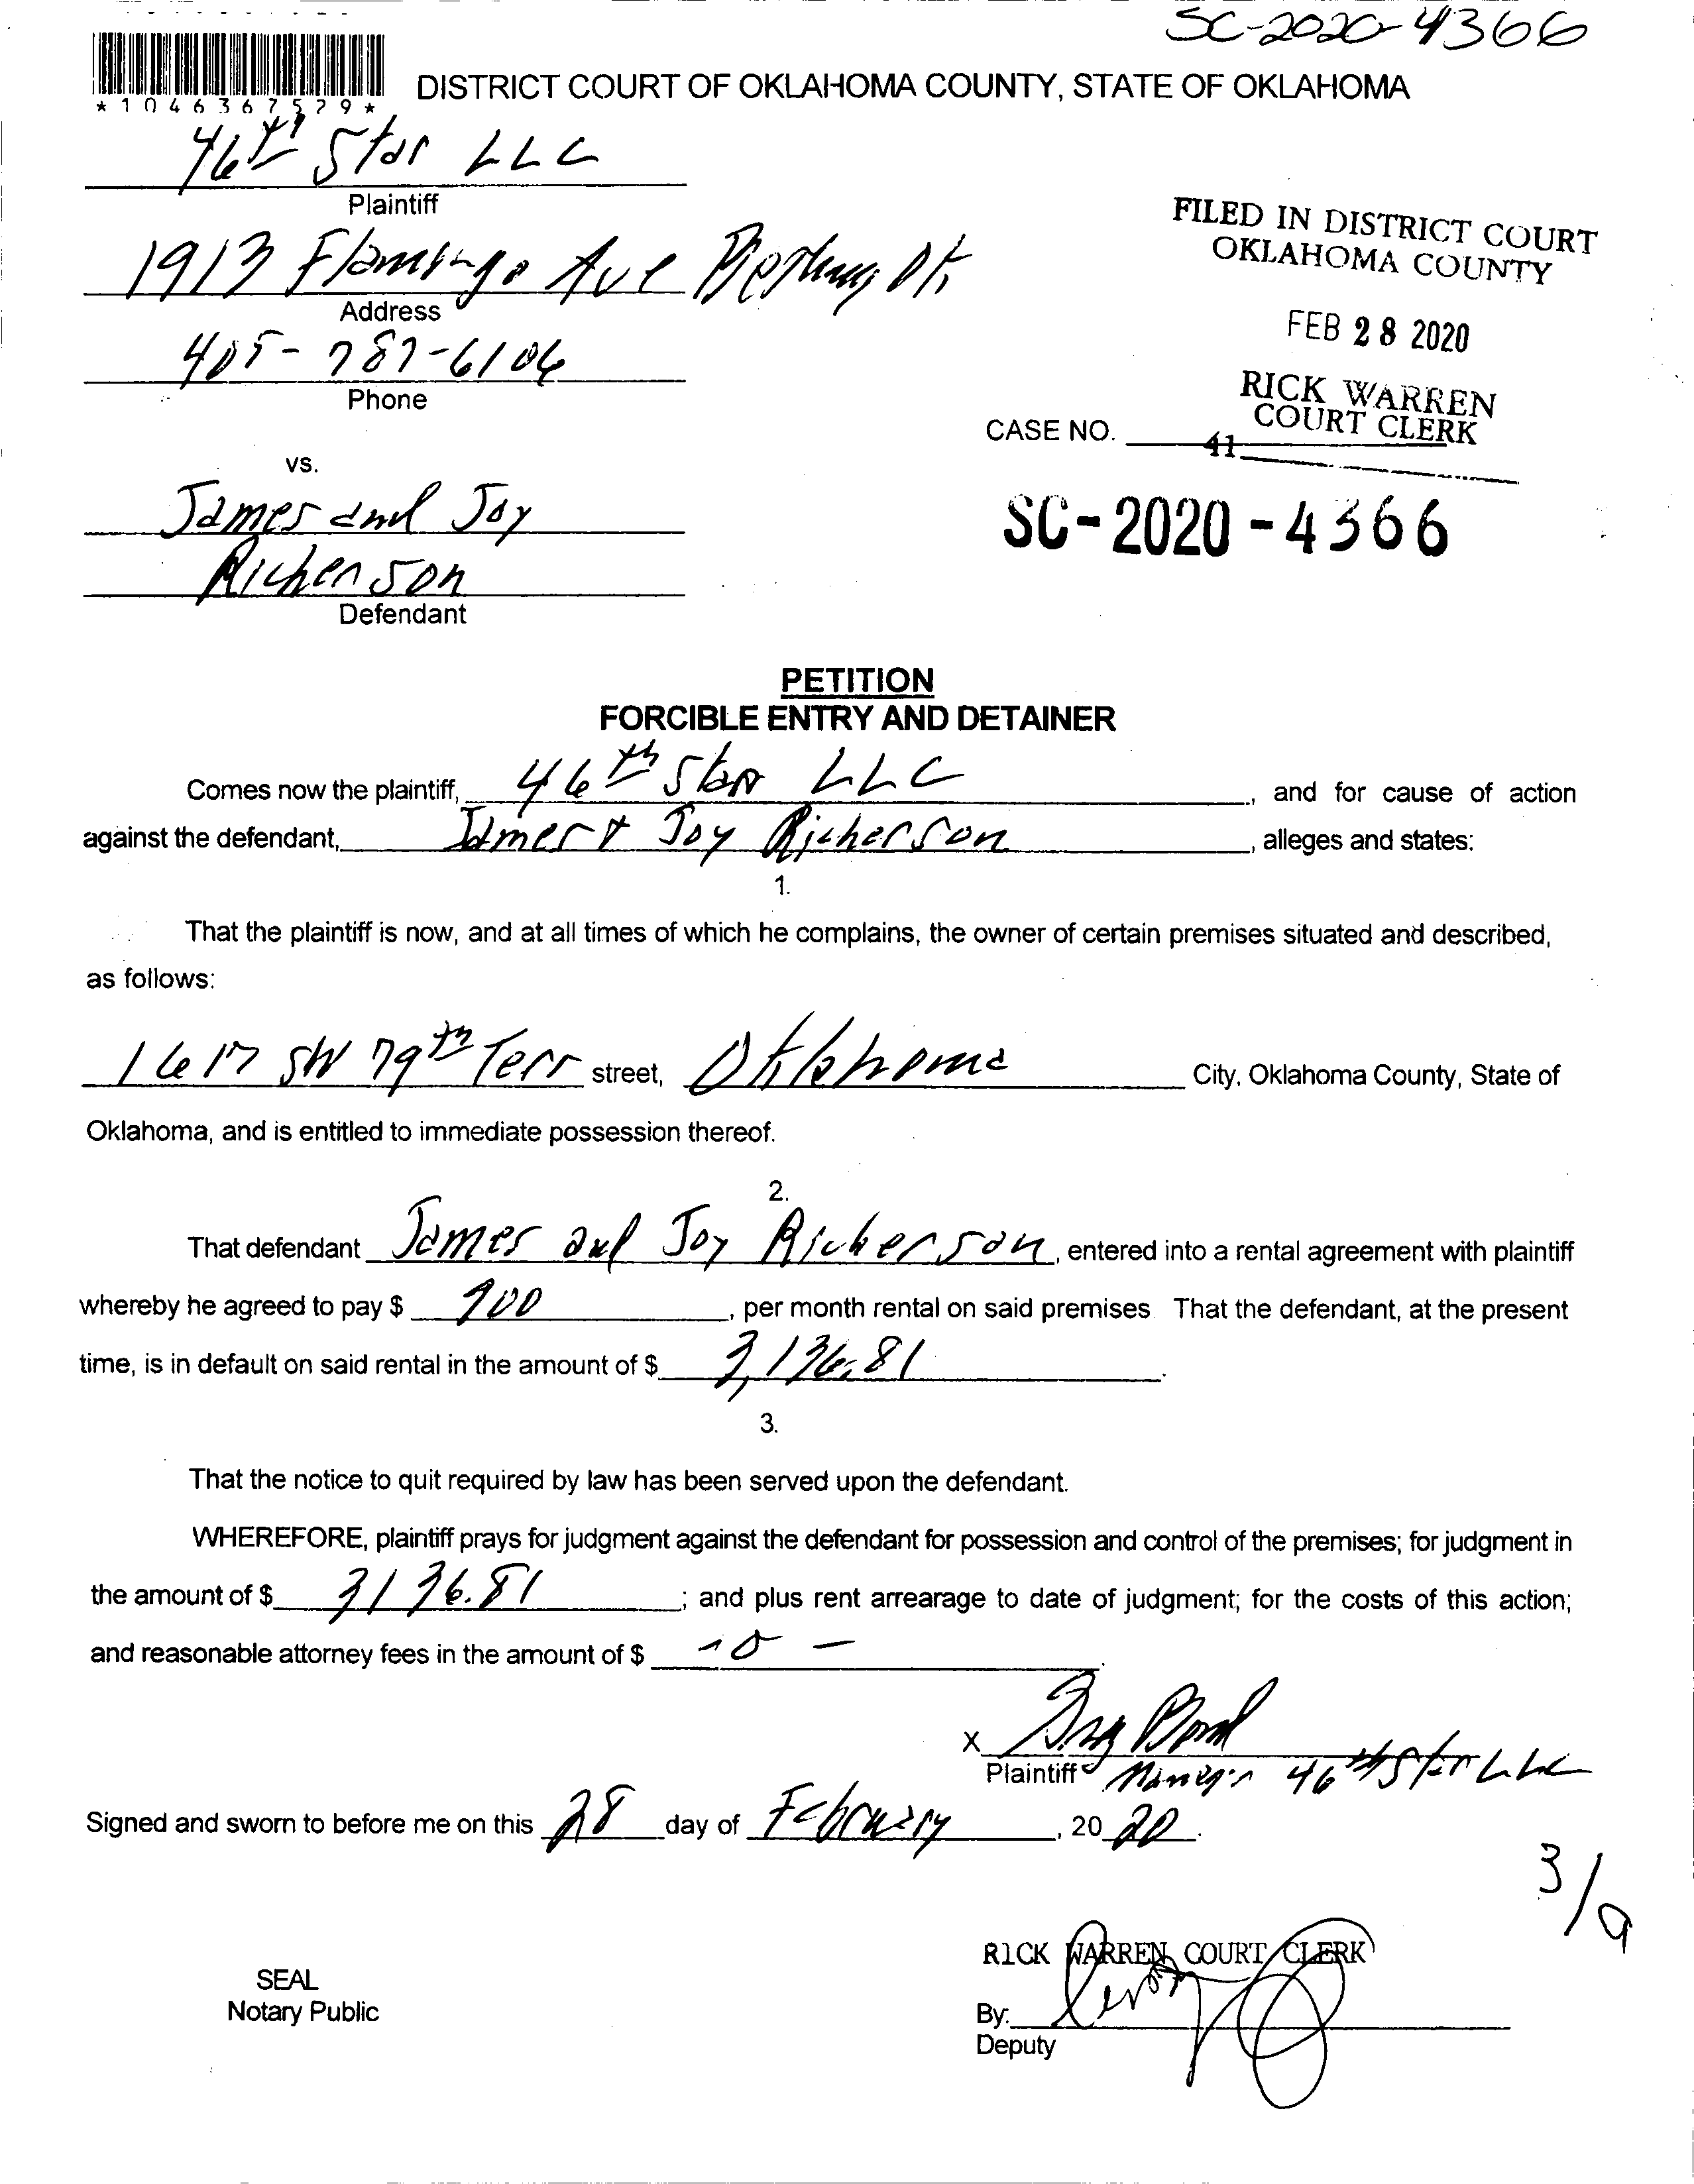 SC-2020-4366
*1046367529*
DISTRICT COURT OF OKLAHOMA COUNTY, STATE OF OKLAHOMA
46th Star LLC
Plaintiff
1913 Flamingo Ave Bethany Ok
Address
405-787-6106
Phone
FILED IN DISTRICT COURT
OKLAHOMA COUNTY
FEB 28 2020
RICK WARREN
COURT CLERK
CASE NO.
41
vs.
James and Joy
Richerson
Defendant
SC-2020-4366
PETITION
FORCIBLE ENTRY AND DETAINER
Comes now the plaintiff, 46th Star LLC, and for cause of action
against the defendant, James & Joy Richerson, alleges and states:
1.
That the plaintiff is now, and at all times of which he complains, the owner of certain premises situated and described,
as follows:
1617 SW 79th Terr street, Oklahoma City, Oklahoma County, State of
Oklahoma, and is entitled to immediate possession thereof.
2.
That defendant James and Joy Richerson, entered into a rental agreement with plaintiff
whereby he agreed to pay $ 900, per month rental on said premises That the defendant, at the present
time, is in default on said rental in the amount of $ 3,136.81.
3.
That the notice to quit required by law has been served upon the defendant.
WHEREFORE, plaintiff prays for judgment against the defendant for possession and control of the premises; for judgment in
the amount of $ 3136.81; and plus rent arrearage to date of judgment; for the costs of this action;
and reasonable attorney fees in the amount of $ -0-.
X
Plaintiff Manager 46th Star LLC
Signed and sworn to before me on this 28 day of February, 2020.
3/9
RICK WARREN COURT CLERK
SEAL
Notary Public
By:
Deputy